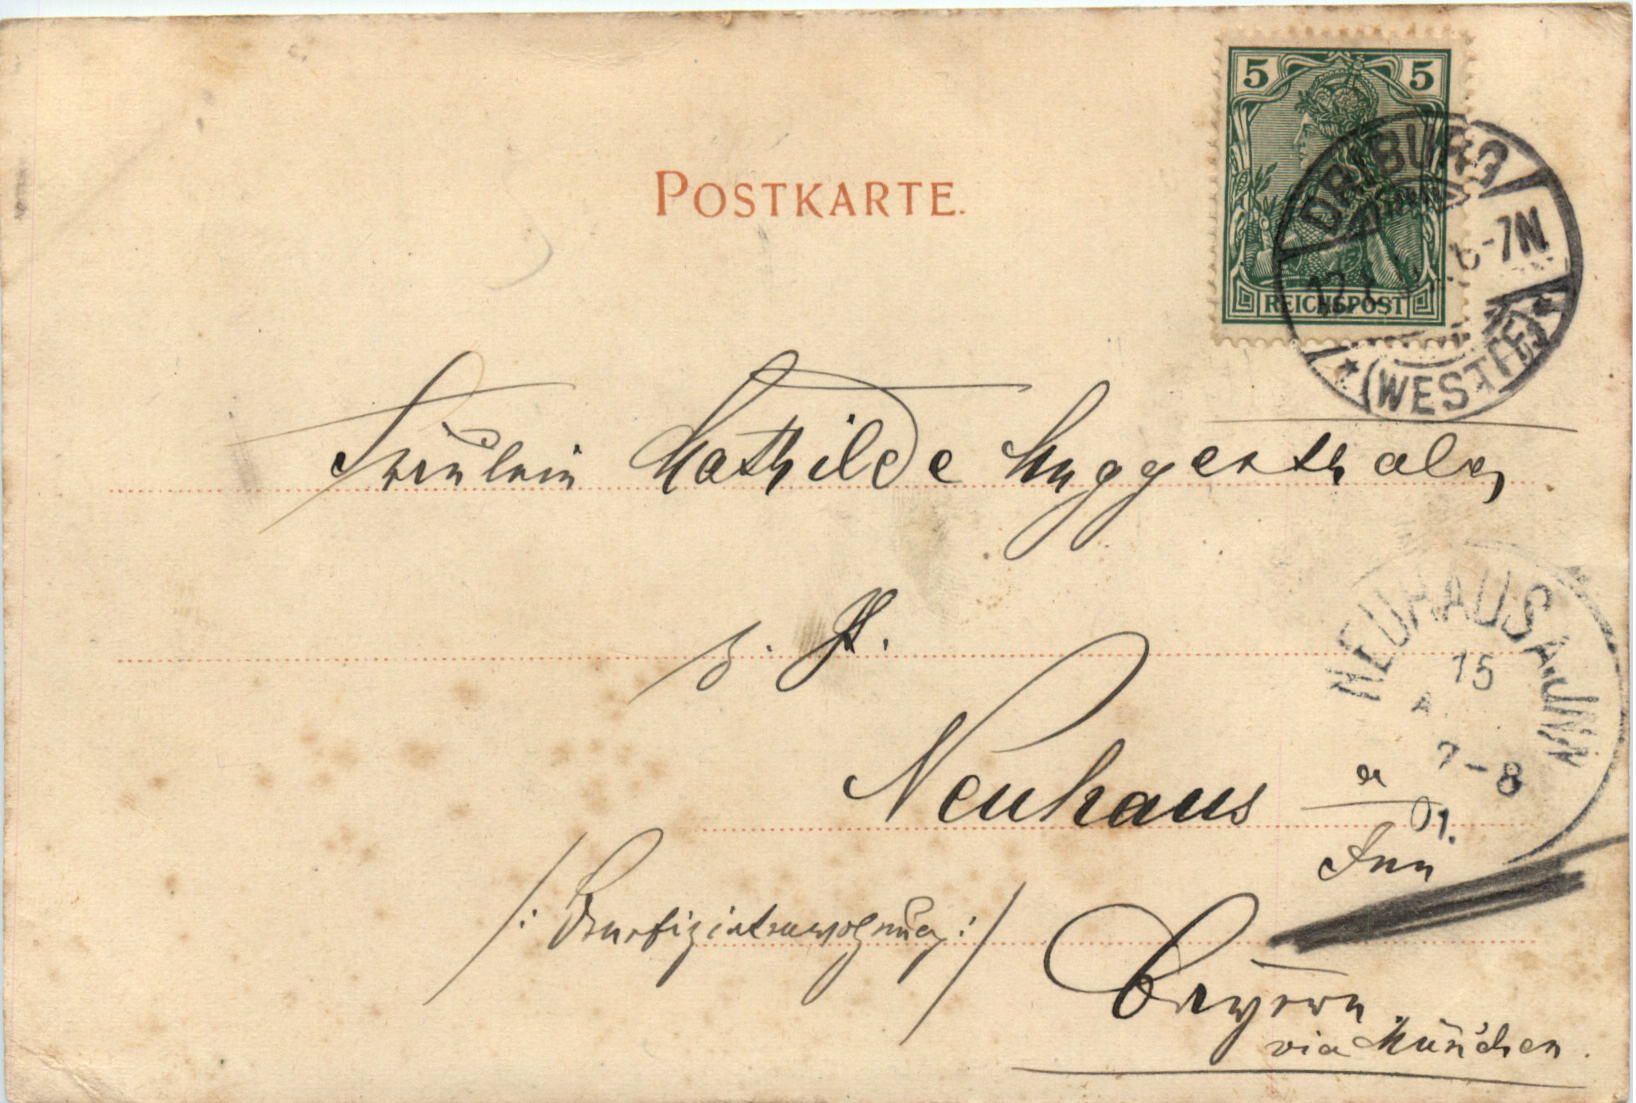 5 5
REICHSPOST
DRIBURG
6-7N.
* (WESTF.) *
POSTKARTE.
Fräulein Mathilde Muggenthaler
z. Z.
NEUHAUS A. INN
15
A
7-8
01.
Neuhaus a
Inn
/: Benefiziatenwohnung :/
Bayern
via München.